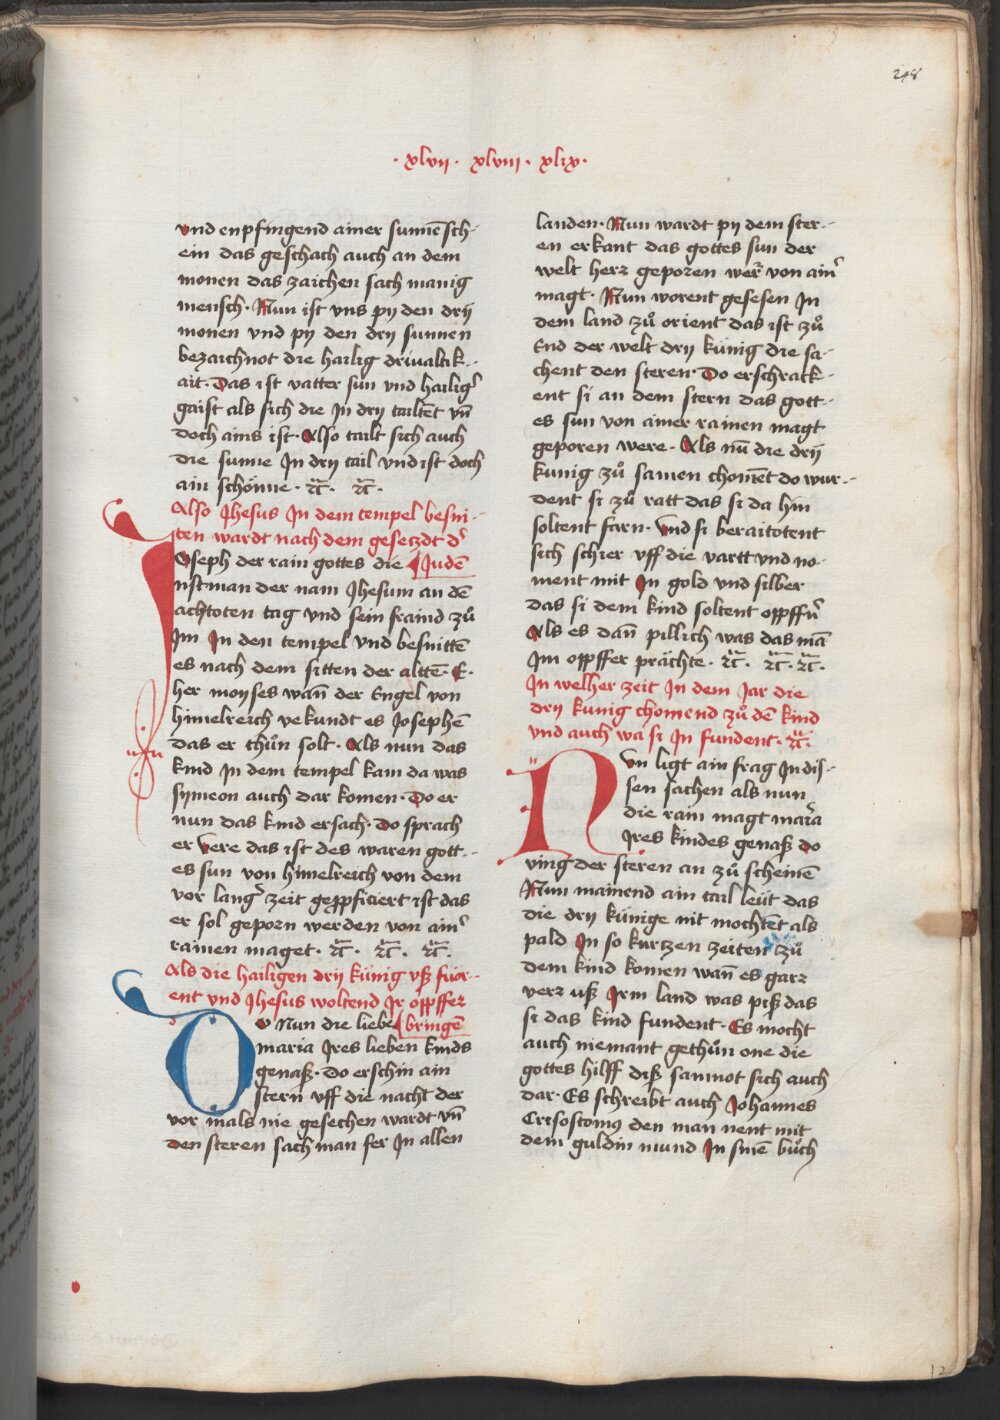 248
· xlvii · xlviii · xlix ·
vnd enpfingend ainer sunnē sch-
ein das geschach auch an dem
monen das zaichen sach manig
mensch · Nun ist vns py den drÿ
monen vnd py den dry sunnen
bezaichnot die hailig driualtik-
ait · Das ist vatter sun vnd hailig᾽
gaist als sich die In dry tailtēt vn̄
doch ains ist · Also tailt sich auch
die sunne In dry tail vnd ist doch
ain schönne · ⁊c̄ · ⁊c̄ ·
Also Jhesus In dem tempel besni-
ten wardt nach dem gesetzdt d᾽
Judē
Joseph der rain gottes die
nstman der nam Jhesum an dē
achtoten tag vnd sein fraind zů
Im In den tempel vnd besnittē
es nach dem sitten der altē · E ·
her moyses wan̄ der Engel von
himelreich vekundt es Josephē
das er thůn solt · Als nun das
kind In dem tempel kam da was
symeon auch dar komen · Do er
nun das kind ersach · Do sprach
er Vere das ist des waren gott-
es sun von himelreich von dem
vor lang᾽ zeit geppficiert ist das
er sol geporn werden von ain᾽
rainen maget · ⁊c̄ · ⁊c̄ · ⁊c̄ ·
Als die hailigen drÿ künig vß fůr-
ent vnd Jhesus woltend Ir opffer
bringē
Do Nun die liebe
maria Jres lieben kinds
genaß · Do erschin ain
stern vff die nacht der
vor mals nie gesechen wardt vn̄
den steren sach man fer In allen
landen · Nun wardt py dem ster-
en erkant das gottes sun der
welt herr geporen wer von ain᾽
magt · Nun worent gesesen In
dem land zů orient das ist zů
End der welt dry künig die sa-
chent den steren · Do erschrack-
ent si an dem stern das gott-
es sun von ainer rainen magt
geporen were · Als nū die drÿ
kunig zů samen chomēt do wur-
dent si zů ratt das si da hin
soltent farn · Vnd si beraitotent
sich schier vff die vartt vnd no-
ment mit In gold vnd silber
das si dem kind soltent opffr̄
Als es dan̄ pillich was das mā
Im opffer prächte · ⁊c̄ · ⁊c̄ · ⁊c̄ ·
In welher zeit In dem Jar die
dry kunig chomend zů dē kind
vnd auch wa si In fundent · ⁊c̄ ·
Nvn ligt ain frag In dis-
sen sachen als nun
die rain magt maria
Jres kindes genaß do
ving der steren an zů scheinē
Nun mainend ain tail leüt das
die dry künige nit mochtēt als
pald In so kurtzen zeiten zů
dem kind komen wan̄ es garz
verz uß Irm land was piß das
si das kind fundent · Es mocht
auch niemant gethůn one die
gottes hilff diß samnot sich auch
dar · Es schreibt auch Johannes
Crisostomꝰ den man nent mit
dem guldin mund In sinē bůch
12